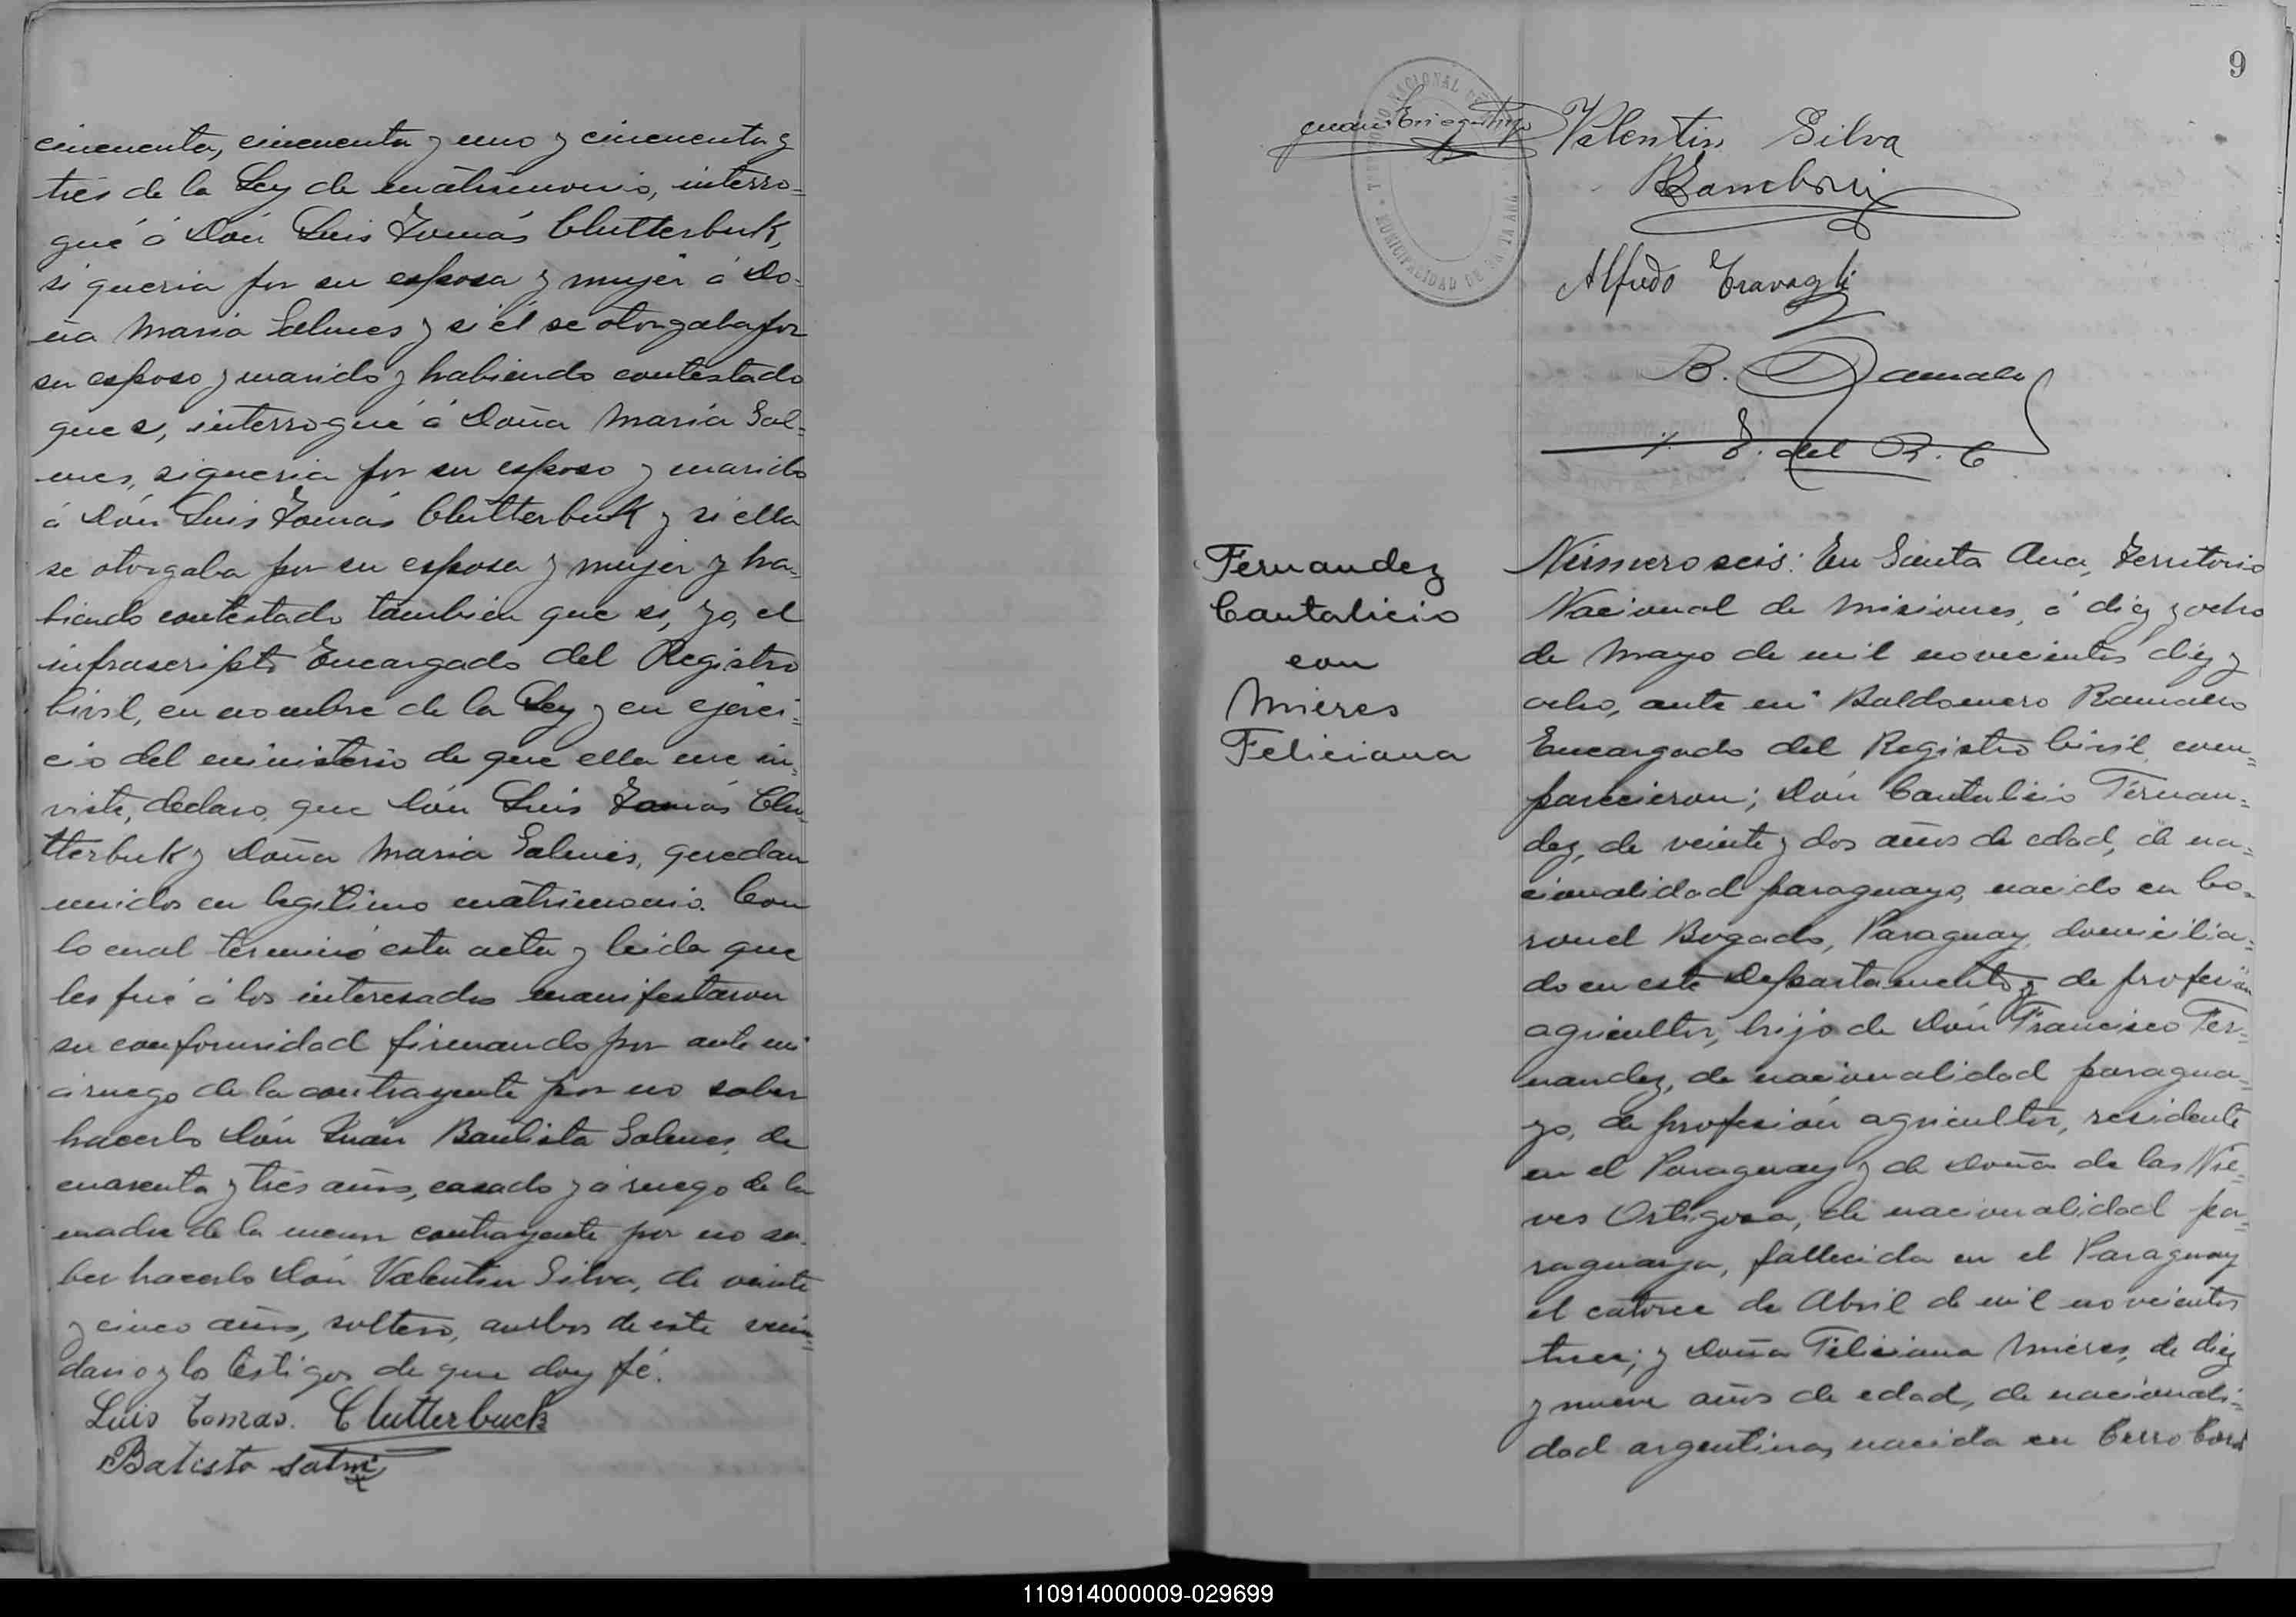 cincuenta, cincuenta y uno y cincuenta y
tres de la Ley de matrimonio, interro=
gué á Dón Luis Tomás Clutterbuk,
si queria por su esposa y mujer á Do=
ña María Salmes y si él se otorgaba por
su esposo y marido y habiendo contestado
que si, interrogué á Doña María Sal=
mes, si queria por su esposo y marido
á Dón Luis Tomás Clutterbuk y si ella
se otorgaba por su esposa y mujer y ha=
biendo contestado tambien que si, yo, el
infrascripto Encargado del Registro
Civil, en nombre de la Ley y en ejerci=
cio del ministerio de que ella me in=
viste, declaro, que Dón Luis Tomás Clu=
tterbuk y Doña Maria Salmes, quedan
unidos en legitimo matrimonio. Con
lo cual terminó esta acta y leida que
les fué á los interesados manifestaron
su conformidad firmando por ante mi
á ruego de la contrayente por no saber
hacerlo Dón Juan Bautista Salmes, de
cuarenta y tres años, casado y á ruego de la
madre de la menor contrayente por no sa=
ber hacerlo Dón Valentin Silva, de veinte
y cinco años, soltero, ambos de este vecin=
dario y los testigos de que doy fé.
Luis Tomas. Clutterbuck
Batista
9
Valentin Silva
Alfredo Travagli
B. Ramallo
E. del R. C
TERRITORIO NACIONAL DE
MUNICIPALIDAD DE SANTA ANA
Fernandez
Cantalicio
con
Mieres
Feliciana
Número seis: En Santa Ana, Territorio
Nacional de Misiones, á diez y ocho
de Mayo de mil novecientos diez y
ocho, ante mi Baldomero Ramallo
Encargado del Registro Civil, com=
parecieron; Dón Cantalicio Fernan=
dez, de veinte y dos años de edad, de na=
cionalidad paraguayo, nacido en Co=
ronel Bogado, Paraguay, domicilia=
do en este Departamento, de profesión
agricultor, hijo de Dón Francisco Fer=
nandez, de nacionalidad paragua=
yo, de profesión agricultor, residente
en el Paraguay y de Doña de las Nie=
ves Ortigoza, de nacionalidad pa=
raguaya, fallecida en el Paraguay
el catorce de Abril de mil novecientos
trece; y Doña Feliciana Mieres, de diez
y nueve años de edad, de nacionali=
dad argentina, nacida en Cerro Corá